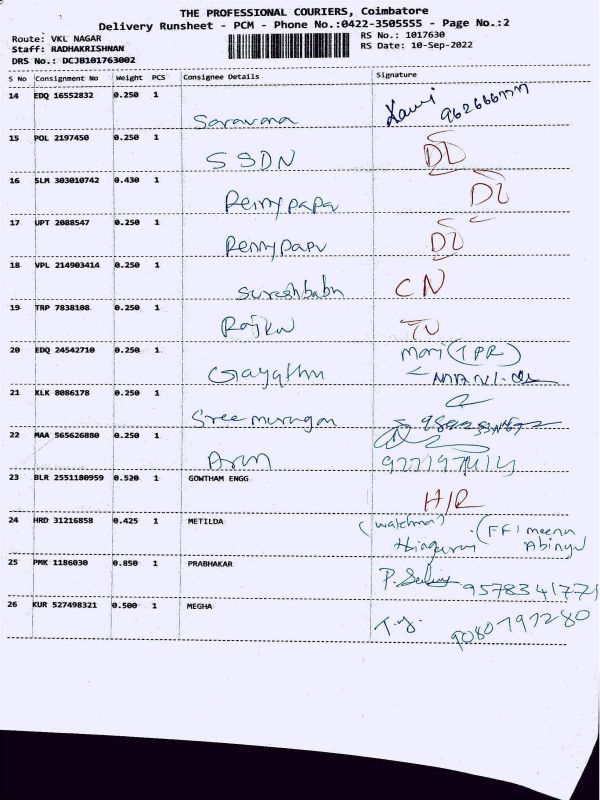 THE PROFESSIONAL COURIERS, Coimbatore
Delivery Runsheet - PCM - Phone No.:0422-3505555 - Page No.:2
Route: VKL NAGAR
RS No.: 1017630
Staff: RADHAKRISHNAN
RS Date: 10-Sep-2022
DRS No.: DCJB101763002
S No Consignment No Weight PCS Consignee Details Signature
14 EDQ 16552832 0.250 1
Saravana
15 POL 2197450 0.250 1
SSDN DL
16 SLM 303010742 0.430 1
Pennypapa DL
17 UPT 2088547 0.250 1
Pennypapu DL
18 VPL 214903414 0.250 1
Sureshbabu CN
19 TRP 7838108 0.250 1
Rajku
20 EDQ 24542710 0.250 1 Mari (TPR)
Gayathri
21 KLK 8086178 0.250 1
Sree murugan
22 MAA 565626880 0.250 1
Arun
23 BLR 2551180959 0.520 1 GOWTHAM ENGG
H/R
24 HRD 31216858 0.425 1 METILDA (watchman) (FF1 meena
25 PMK 1186030 0.850 1 PRABHAKAR
9578341771
26 KUR 527498321 0.500 1 MEGHA
T.y. 9080797280